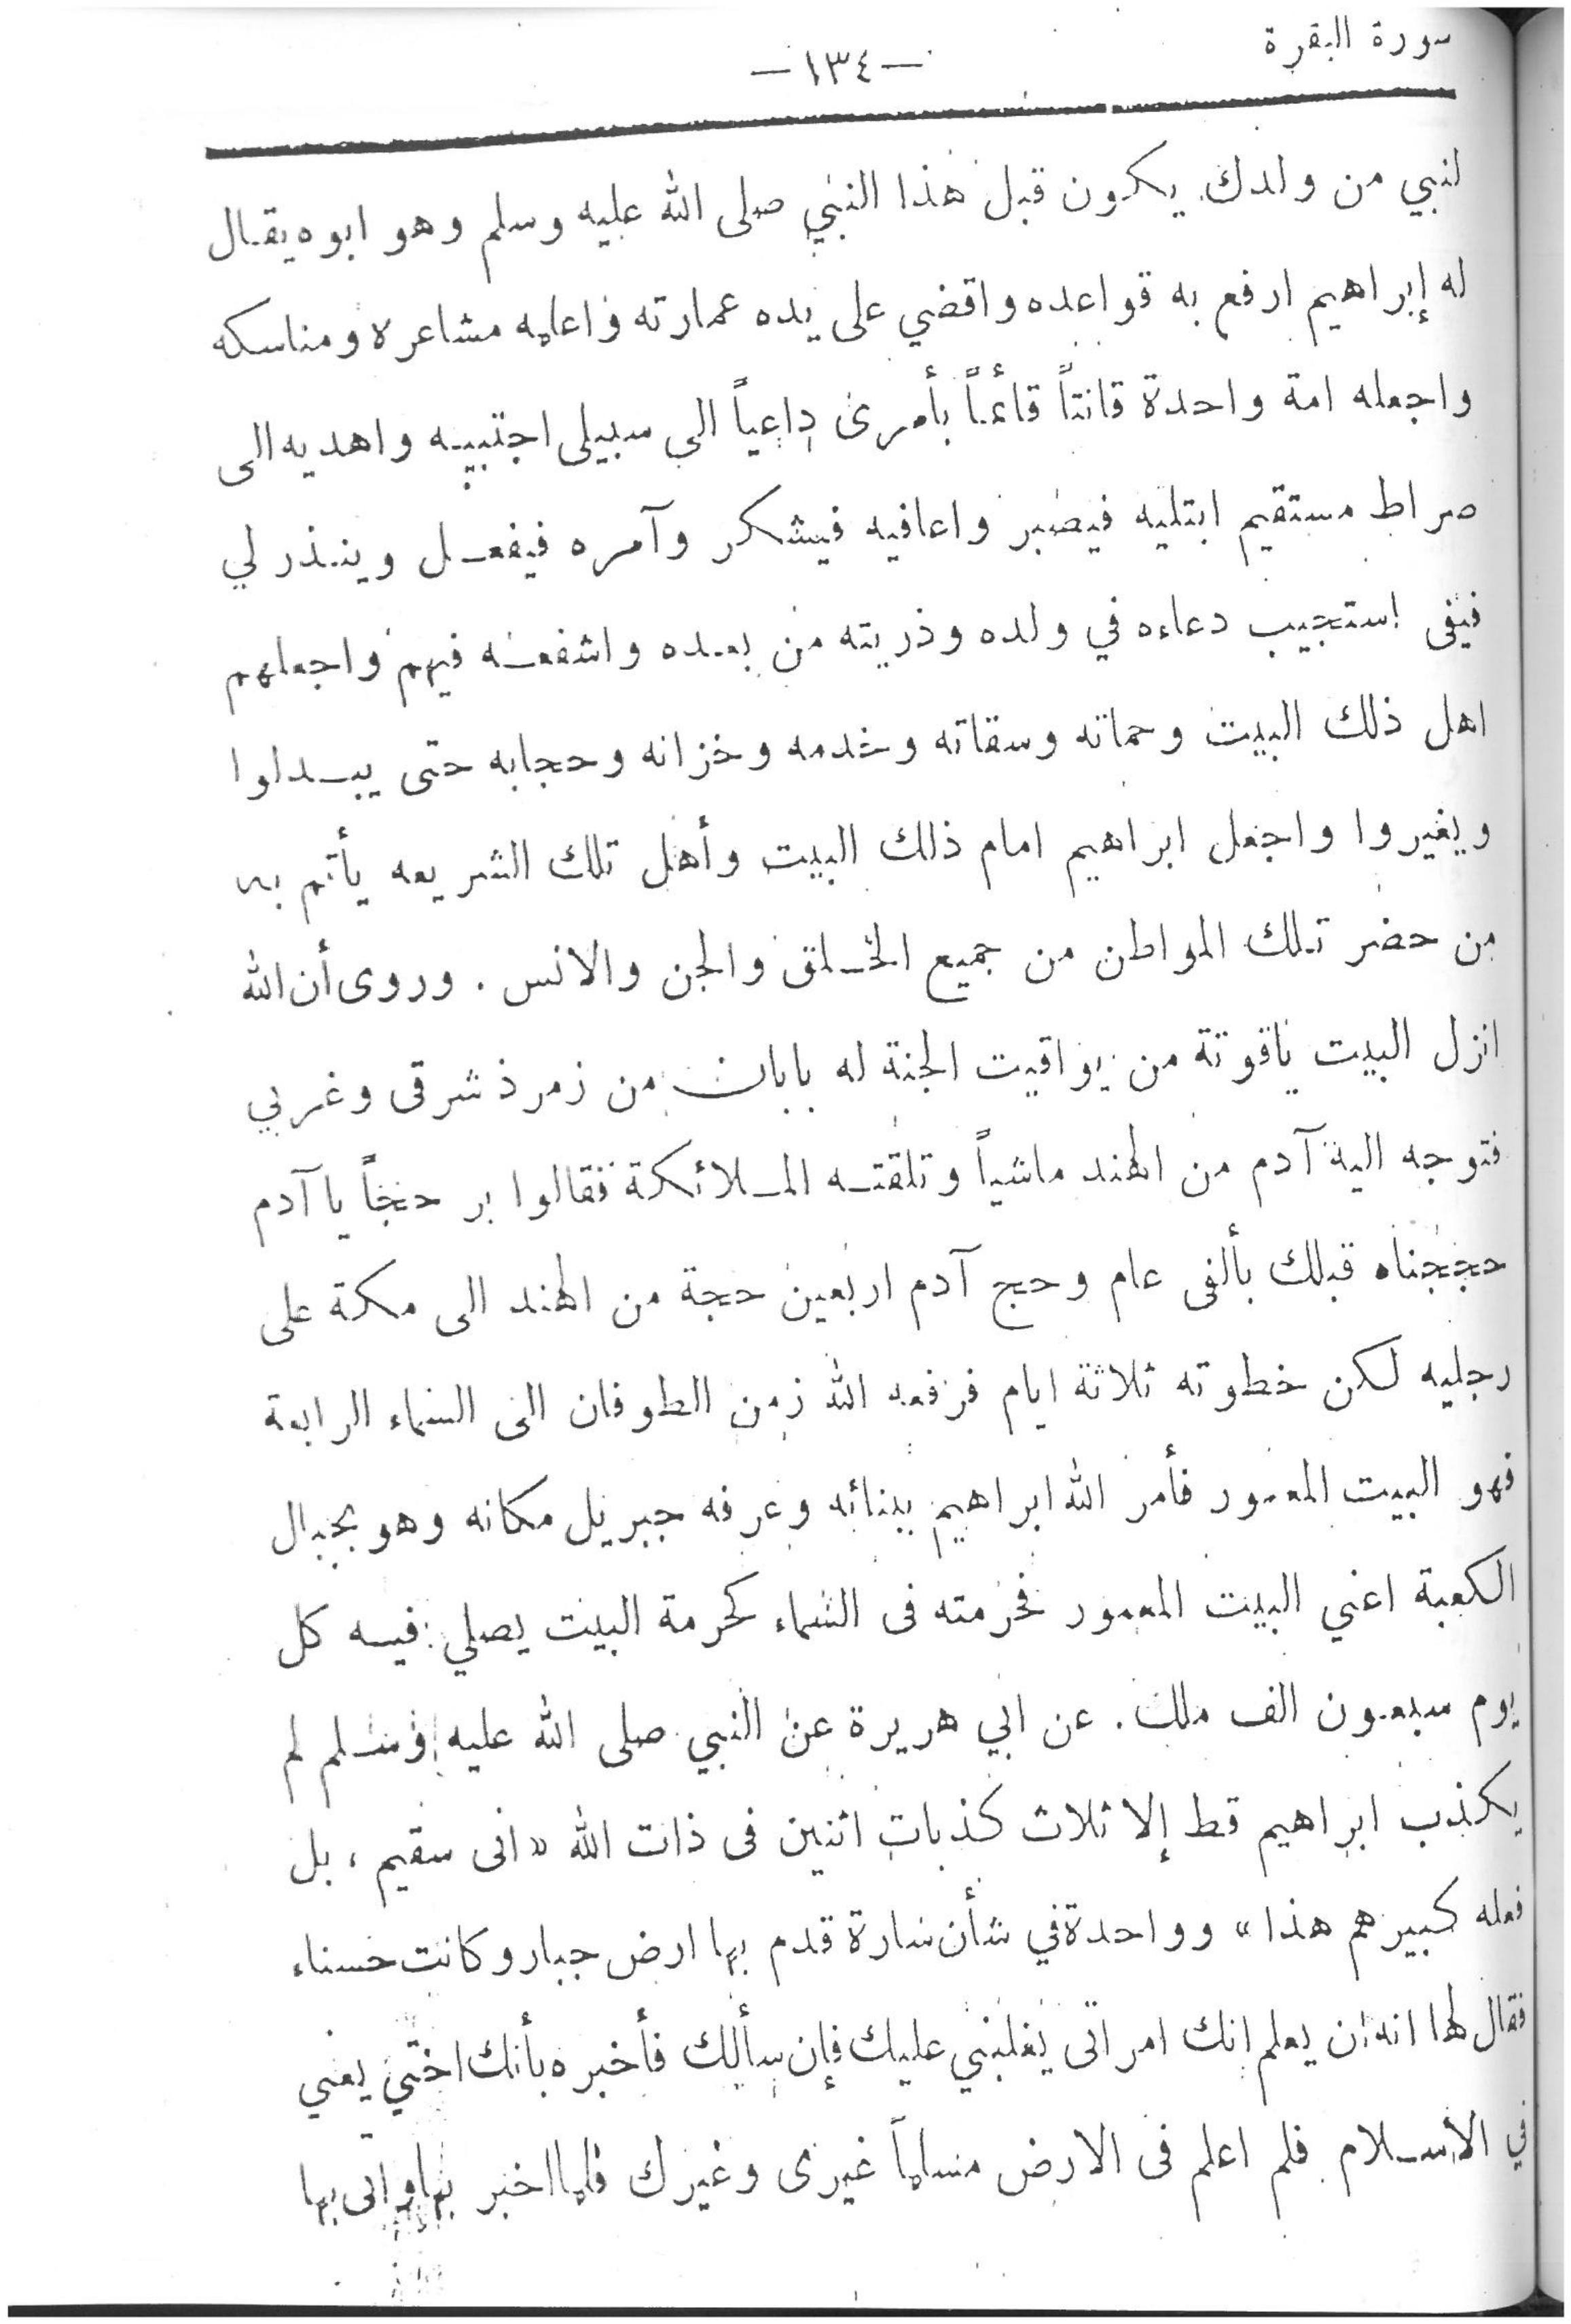 سورة البقرة
—١٣٤—
لنبي من ولدك يكون قبل هذا النبي صلى الله عليه وسلم وهو ابوه يقال
له إبراهيم ارفع به قواعده واقضي على يده عمارته واعلمه مشاعره ومناسكه
واجعله امة واحدة قانتاً قائماً بأمرى داعياً الى سبيلى اجتبيه واهديه الى
صراط مستقيم ابتليه فيصبر واعافيه فيشكر وآمره فيفعل وينذر لي
فيفى استجيب دعاءه في ولده وذريته من بعده واشفعه فيهم واجعلهم
اهل ذلك البيت وحماته وسقاته وخدمه وخزانه وحجابه حتى يبدلوا
ويغيروا واجعل ابراهيم امام ذلك البيت وأهل تلك الشريعه يأتم به
من حضر تلك المواطن من جميع الخلق والجن والانس . وروى أن الله
انزل البيت ياقوتة من يواقيت الجنة له بابان من زمرذ شرقى وغربي
فتوجه اليه آدم من الهند ماشياً وتلقته الملائكة فقالوا بر حجاً يا آدم
حججناه قبلك بألفى عام وحج آدم اربعين حجة من الهند الى مكة على
رجليه لكن خطوته ثلاثة ايام فرفعه الله زمن الطوفان الى السماء الرابعة
فهو البيت المعمور فأمر الله ابراهيم ببنائه وعرفه جبريل مكانه وهو بحيال
الكعبة اعني البيت المعمور فحرمته فى السماء كحرمة البيت يصلي فيه كل
يوم سبعون الف ملك . عن ابي هريرة عن النبي صلى الله عليه وسلم لم
يكذب ابراهيم قط إلا ثلاث كذبات اثنين فى ذات الله « انى سقيم ، بل
فعله كبيرهم هذا » وواحدة في شأن سارة قدم بها ارض جبار وكانت حسناء
فقال لها انه ان يعلم انك امراتى يغلبني عليك فإن سألك فأخبره بأنك اختي يعني
في الاسلام فلم اعلم فى الارض مسلماً غيرى وغيرك فلما اخبر بها واتى بها